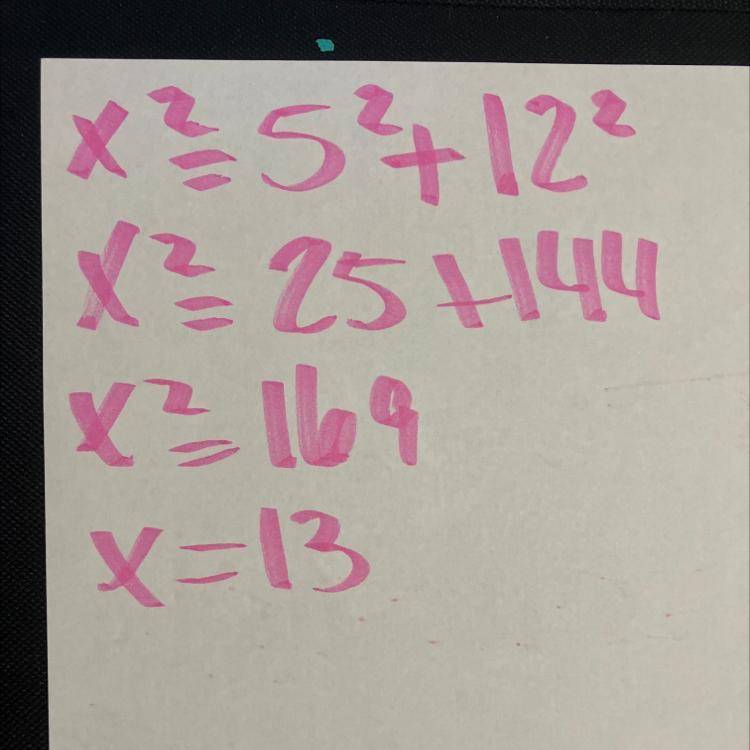 x² = 5² + 12²
x² = 25 + 144
x² = 169
x = 13